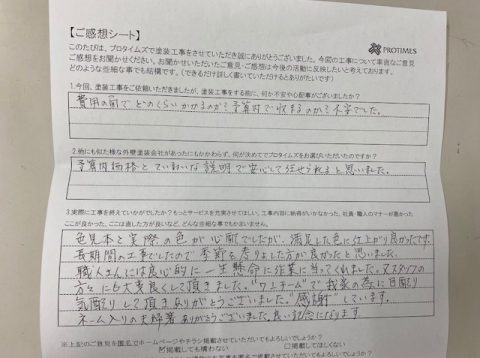 【ご感想シート】
PROTIMES
このたびは、プロタイムズで塗装工事をさせていただき誠にありがとうございました。今回の工事について率直なご意見
ご感想をお聞かせください。お聞かせいただいたご意見・ご感想は今後の活動に反映したいと考えております。
どのような些細な事でも結構です。（できるだけ詳しく書いていただけるとありがたいです）
1.今回、塗装工事をご依頼いただきましたが、塗装工事をする前に、何か不安や心配事がございましたか？
費用の面でどのくらいかかるのか？予算内で収まるのか？不安でした。
2.他にも似た様な外壁塗装会社があったにもかかわらず、何が決めてでプロタイムズをお選びいただいたのですか？
予算内価格とていねいな説明で安心して任せられると思いました。
3.実際に工事を終えていかがでしたか？もっとサービスを充実させてほしい、工事内容に納得がいかなかった、社員・職人のマナーが悪かった
ここが良かった、ここは直した方が良いなど、どんな些細な事でもかまいません。
色見本と実際の色が心配でしたが、満足した色に仕上がり良かったです。
長期間の工事でしたので季節を考りょした方が良かったと思いました。
職人さんには良心的に一生懸命に作業に当ってくれました。又スタッフの
方々にも大変良くして頂きました。"ワンチーム"で我家の為に目配り
気配りして頂きありがとうございました。"感謝"しています。
ネーム入りの夫婦箸ありがとうございました。良い記念になります。
※上記のご意見を匿名でホームページやチラシ掲載させていただいてもよろしいでしょうか？
掲載しても構わない
掲載してほしくない